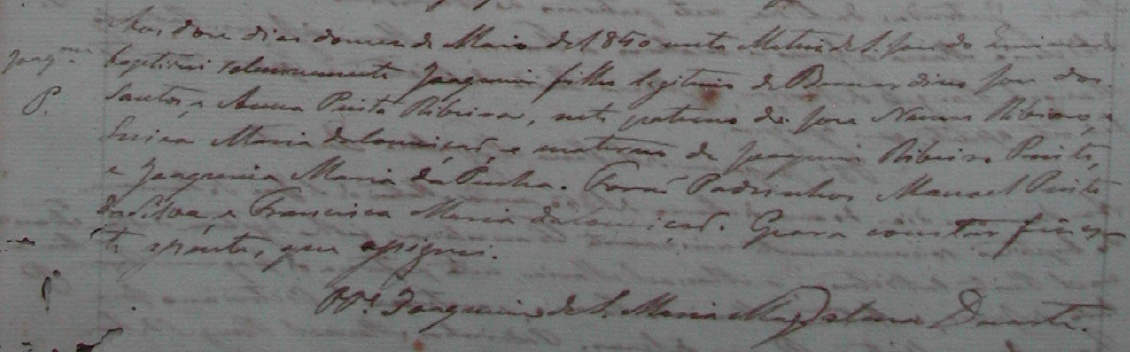 Aos doze dias do mes de Maio de 1840 nesta Matriz de S. Jose do
Joaqm
baptisei solemnemente Joaquim filho legitimo de Bernardino Jose dos
P.
Santos, e Anna Pinto Ribeiro, neto paterno de Jose Nunes Ribeiro, e
Maria da Conceição, e materno de Joaquim Ribeiro Pinto,
e Joaquina Maria da Penha. Forão Padrinhos Manoel Pinto
da Silva, e Francisca Maria da Conceição. E para constar fiz es-
te assento, que assignei.
Joaquim de S. Maria Magdalena Duarte.